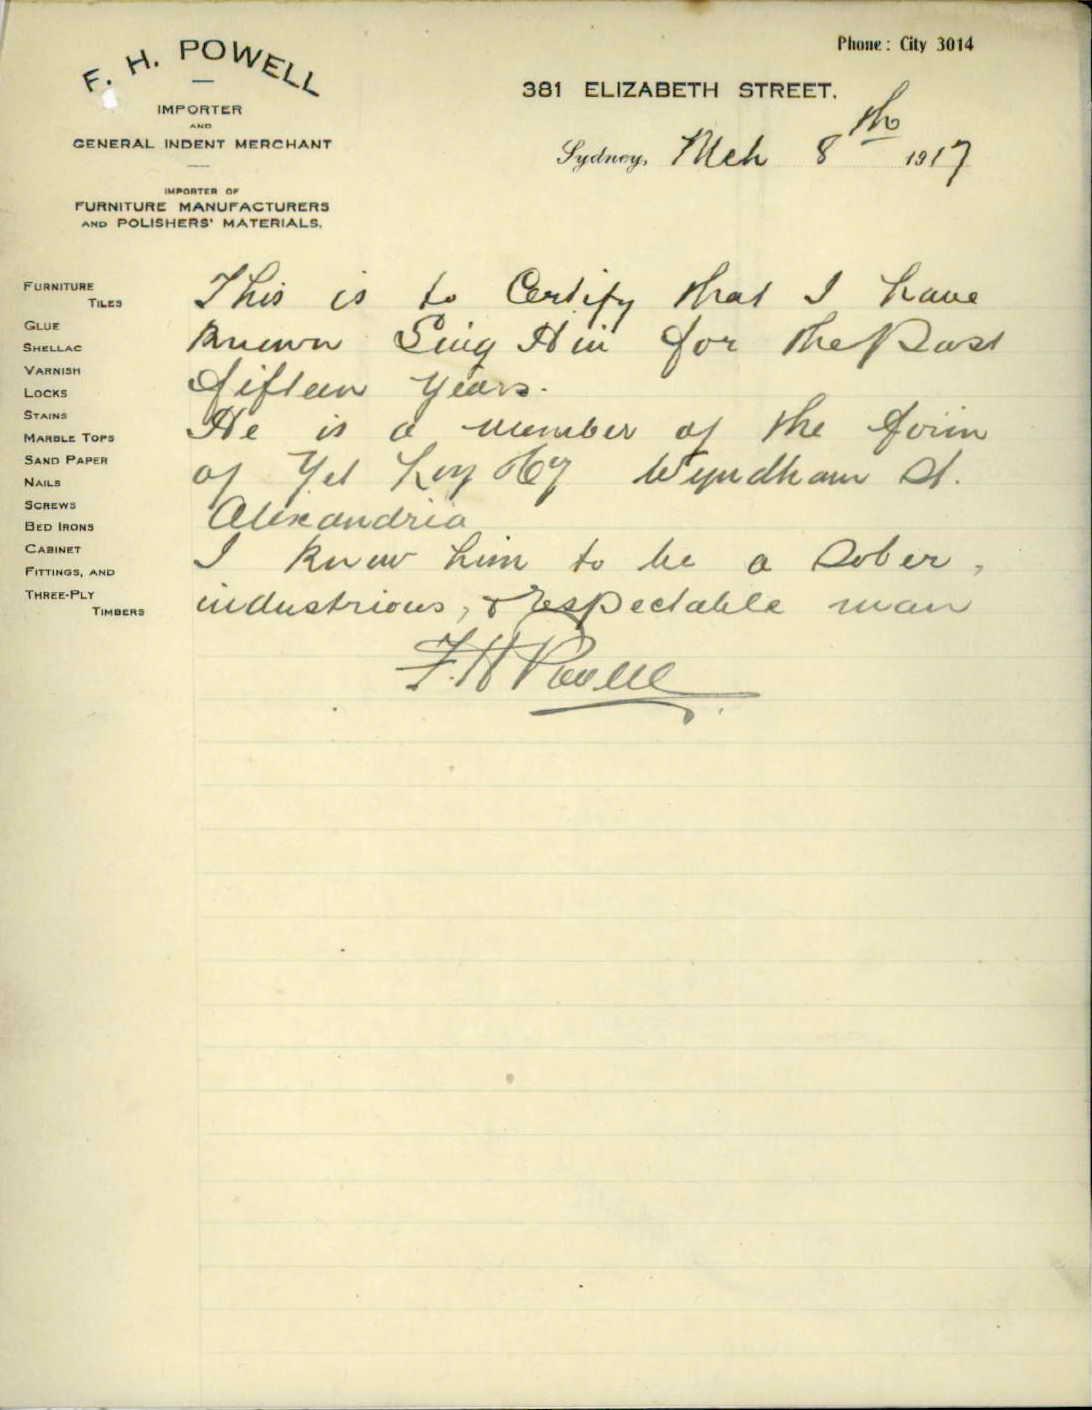 F. H. POWELL
IMPORTER
AND
GENERAL INDENT MERCHANT
IMPORTER OF
FURNITURE MANUFACTURERS
AND POLISHERS' MATERIALS.
Phone: City 3014
381 ELIZABETH STREET.
Sydney, Mch 8th 1917
FURNITURE
TILES
GLUE
SHELLAC
VARNISH
LOCKS
STAINS
MARBLE TOPS
SAND PAPER
NAILS
SCREWS
BED IRONS
CABINET
FITTINGS, AND
THREE-PLY
TIMBERS
This is to Certify that I have
known Sing Hin for the Past
fifteen years.
He is a member of the firm
of Yet Wyndham St.
Alexandria
I know him to be a sober,
industrious, & respectable man
F. H Powell